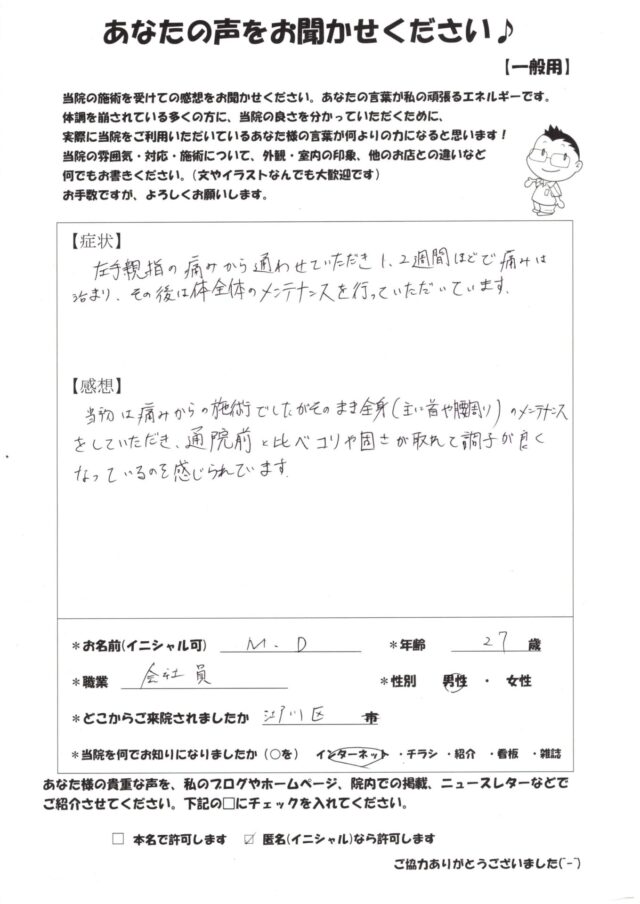 あなたの声をお聞かせください♪
【一般用】
当院の施術を受けての感想をお聞かせください。あなたの言葉が私の頑張るエネルギーです。
体調を崩されている多くの方に、当院の良さを分かっていただくために、
実際に当院をご利用いただいているあなた様の言葉が何よりの力になると思います！
当院の雰囲気・対応・施術について、外観・室内の印象、他のお店との違いなど
何でもお書きください。(文やイラストなんでも大歓迎です)
お手数ですが、よろしくお願いします。
【症状】
左手親指の痛みから通わせていただき1、2週間ほどで痛みは
治まり、その後は体全体のメンテナンスを行っていただいています。
【感想】
当初は痛みからの施術でしたがそのまま全身(主に首や腰周り)のメンテナンス
をしていただき、通院前と比べコリや固さが取れて調子が良く
なっているのを感じられています。
＊お名前(イニシャル可) M.D ＊年齢 27 歳
＊職業 会社員 ＊性別 男性 ・ 女性
＊どこからご来院されましたか 江戸川区 市
＊当院を何でお知りになりましたか(○を) インターネット ・チラシ ・紹介 ・看板 ・雑誌
あなた様の貴重な声を、私のブログやホームページ、院内での掲載、ニュースレターなどで
ご紹介させてください。下記の□にチェックを入れてください。
□ 本名で許可します ☑ 匿名(イニシャル)なら許可します
ご協力ありがとうございました(^-^)